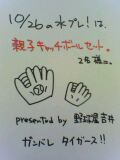 10/26の水プレ!は、
親子キャッチボールセット。
2名様に。
presented by 野球屋吉井
ガンバレ タイガース!!